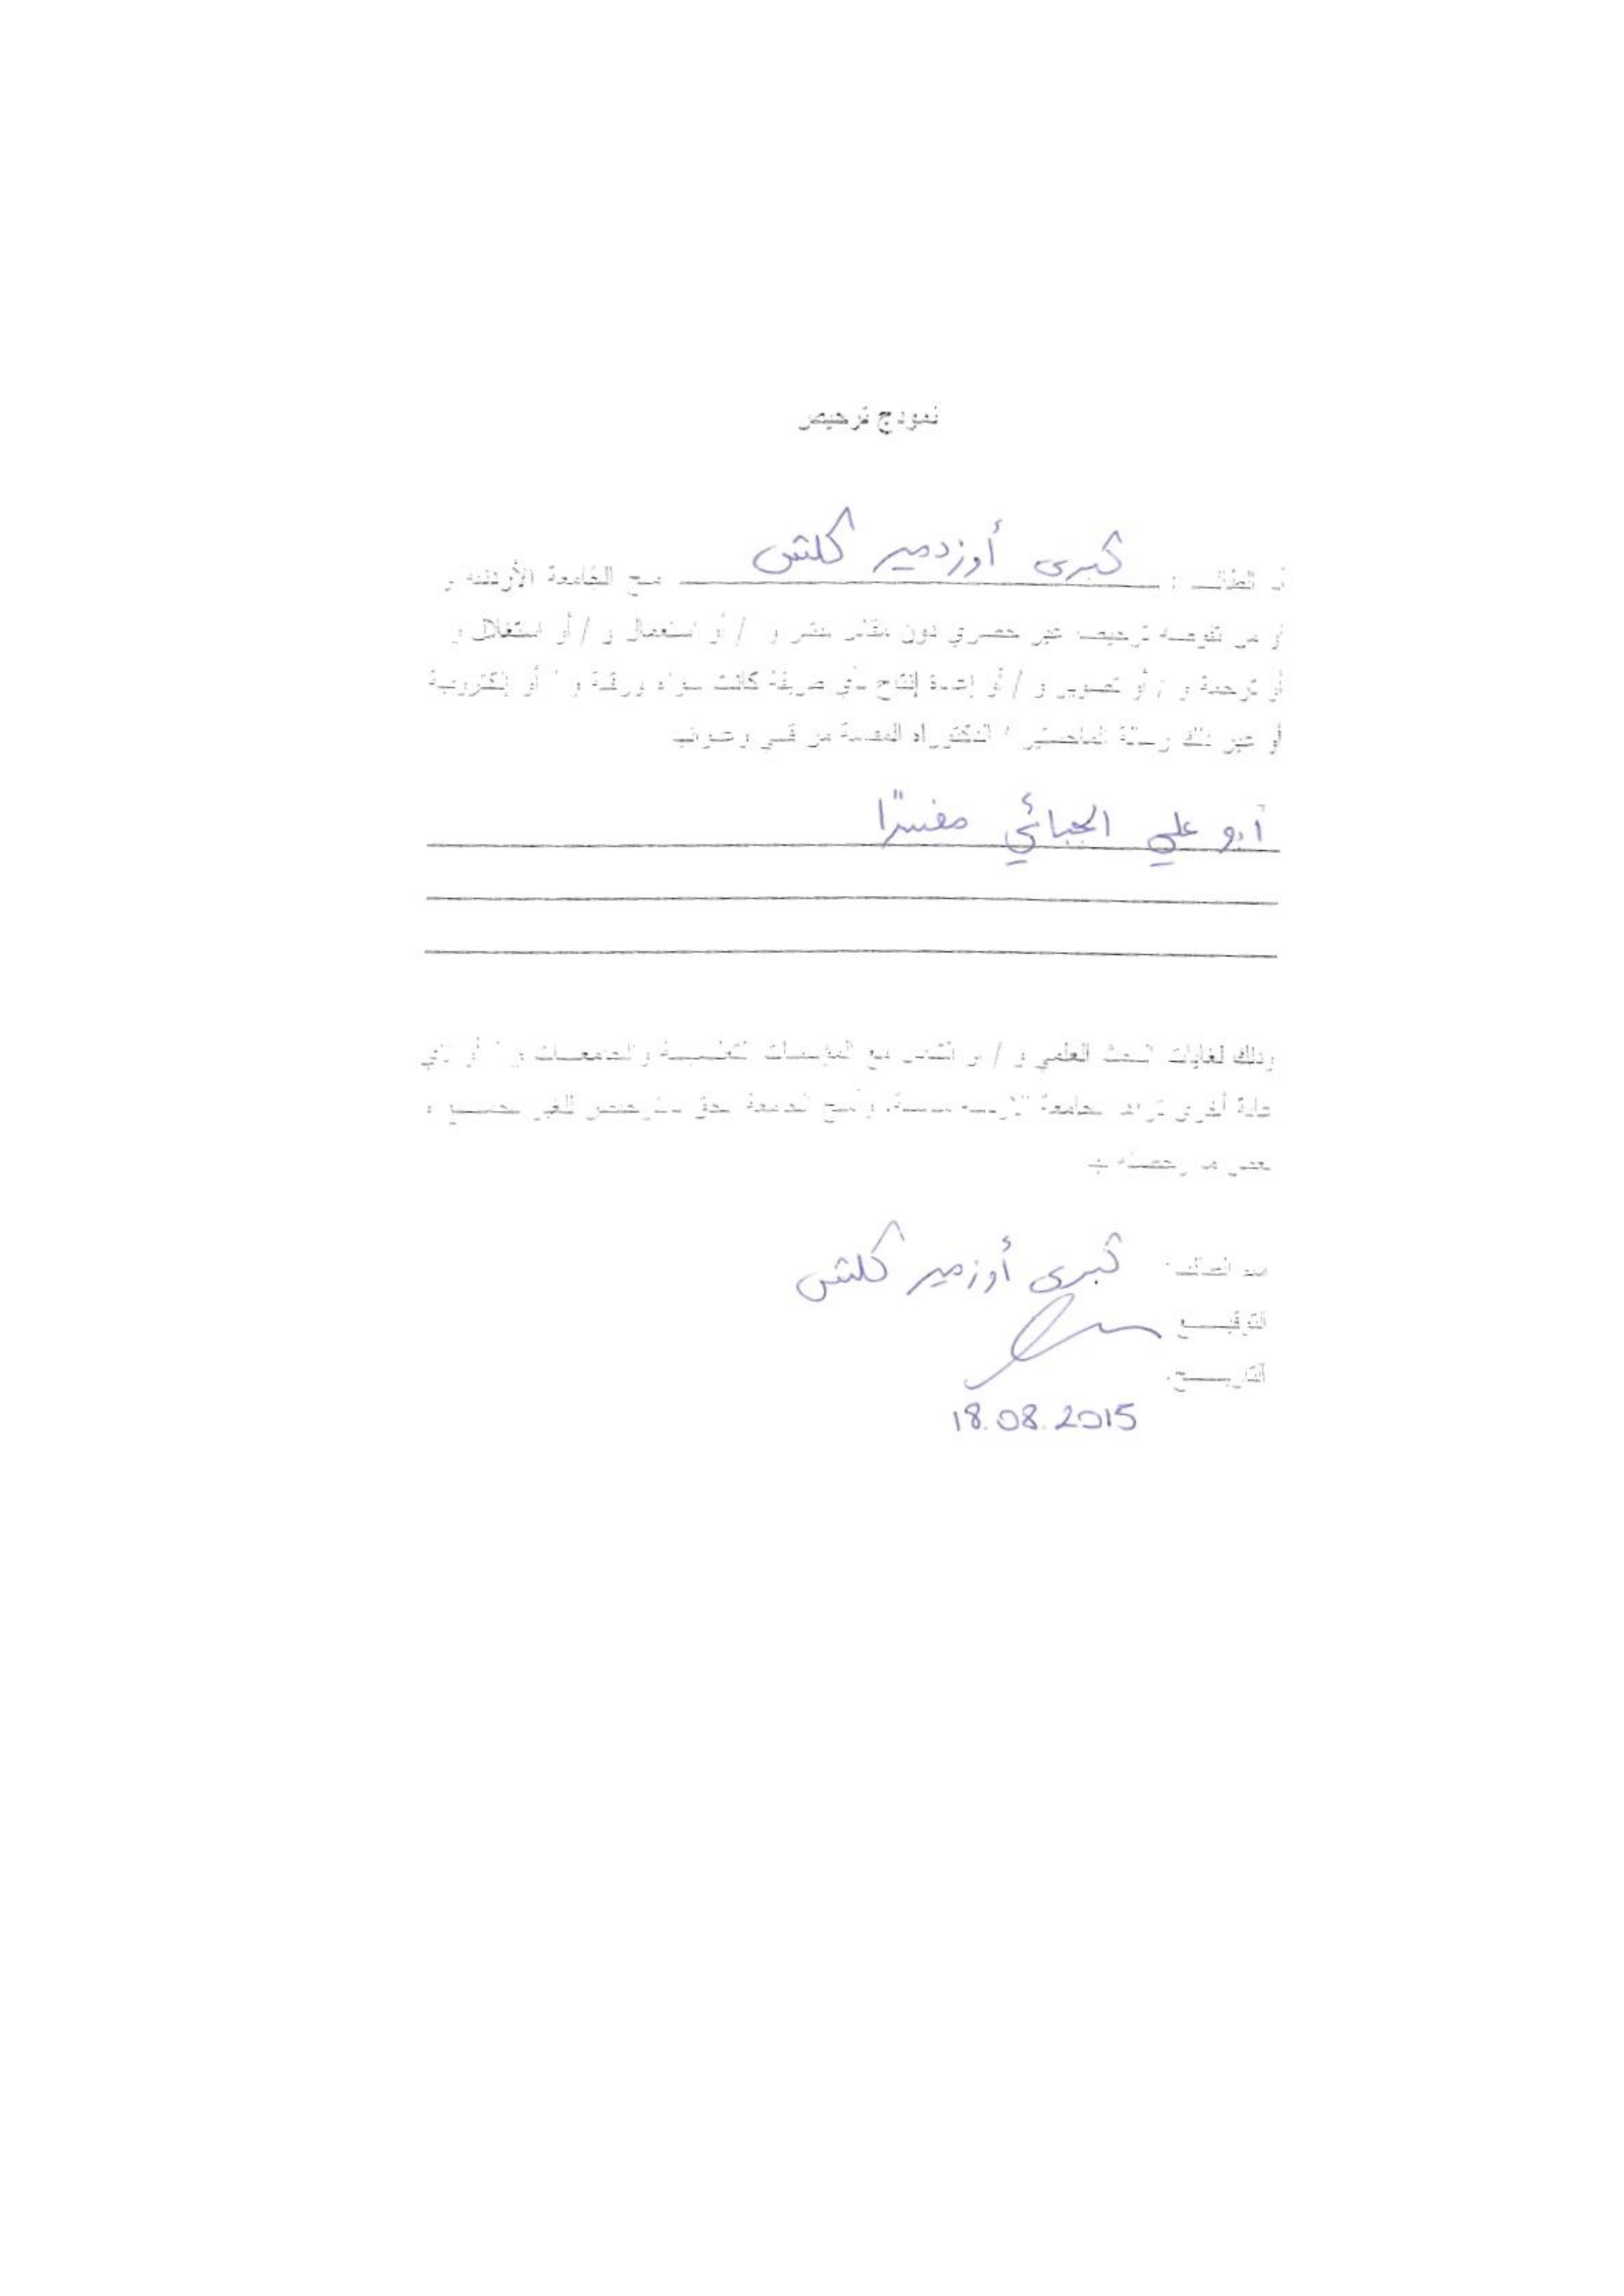 نموذج ترخيص
كبرى أوزدمير كلش
أنا الطالب : منح الجامعة الأردنية و
أو من تفوضه ترخيصا غير حصري دون مقابل بنشر و / أو استعمال و / أو استغلال و
أو ترجمة و / أو تصوير و / أو إعادة إنتاج بأي طريقة كانت سواء ورقية و / أو إلكترونية
أو غير ذلك رسالة الماجستير / الدكتوراه المقدمة من قبلي وعنوانها
أبو علي الجبائي مفسرًا
وذلك لغايات البحث العلمي و / أو التبادل مع المؤسسات التعليمية والجامعات و / أو لأي
غاية أخرى تراها الجامعة الأردنية مناسبة، وأمنح الجامعة الحق بالترخيص للغير بجميع أو
بعض ما رخصته لها
اسم الطالب: كبرى أوزمير كلش
التوقيع
التاريخ:
18.08.2015